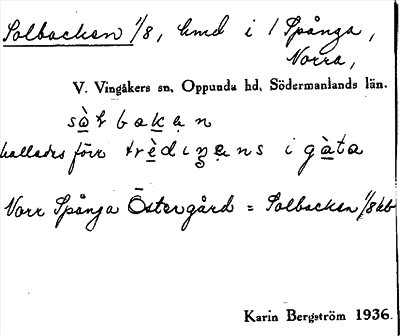 Solbacken 1/8, hmd i / Spånga,
Norra,
V. Vingåkers sn, Oppunda hd, Södermanlands län.
sò̱ɫbak̠ẹn
kallades förr trè̱diŋẹns i gà̱ta
Norr Spånga Östergård = Solbacken 1/8 hb
Karin Bergström 1936.